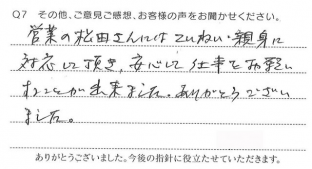 Q7 その他、ご意見ご感想、お客様の声をお聞かせください。
営業の松田さんにはていねい・親身に
対応して頂き、安心して仕事をお願い
することが出来ました。ありがとうござい
ました。
ありがとうございました。今後の指針に役立たせていただきます。